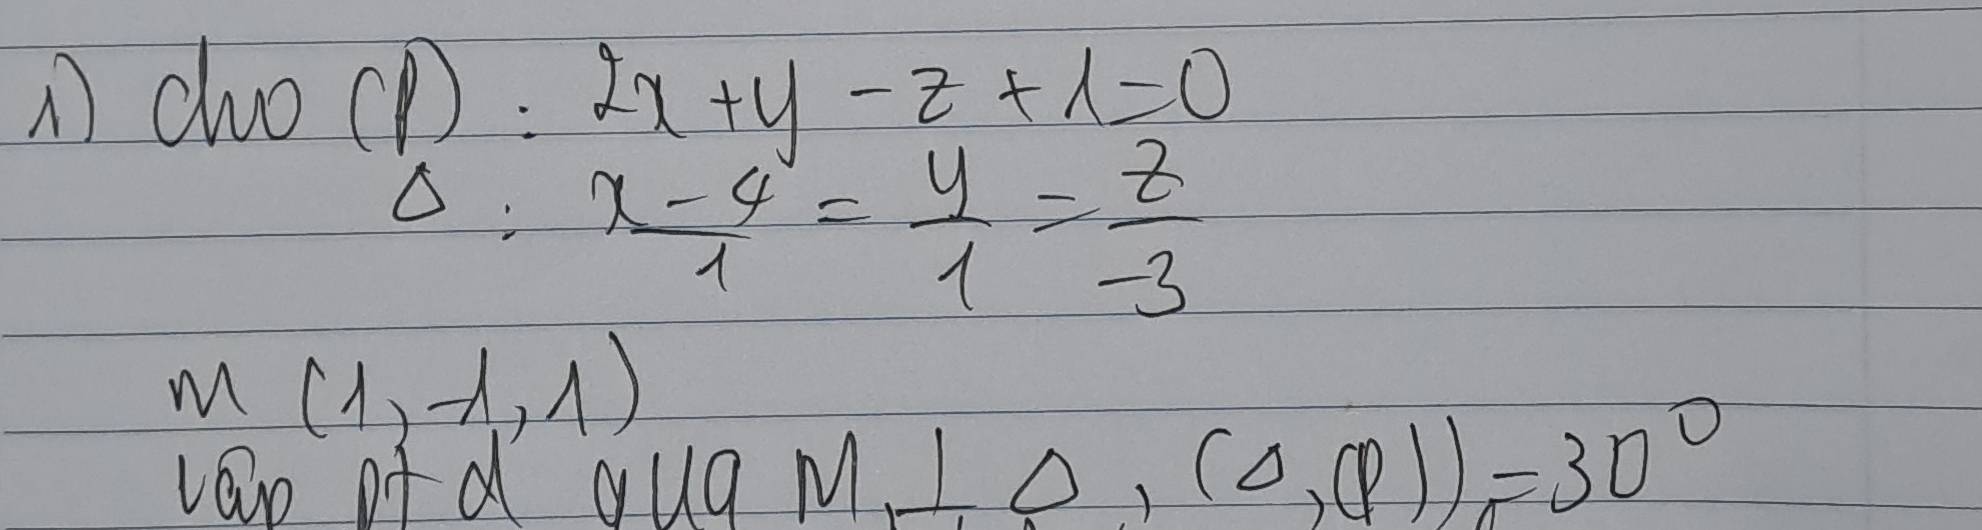 1) cho (P) : 2x + y - z + 1 = 0
Δ : x - 4 / 1 = y / 1 = z / -3
M (1, -1, 1)
Lập pt d qua M, ⊥ Δ, (Δ, (P)) = 30°